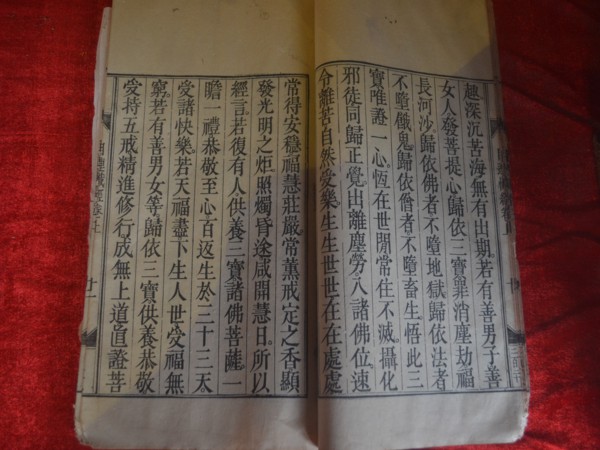 趣深沉苦海無有出期若有善男子善
女人發菩提心歸依三寶罪消塵劫福
長河沙歸依佛者不墮地獄歸依法者
不墮餓鬼歸依僧者不墮畜生悟此三
寶唯證一心恆在世間常住不滅攝化
邪徒同歸正覺出離塵勞入諸佛位速
令離苦自然受樂生生世世在在處處
常得安穩福慧莊嚴常薰戒定之香顯
發光明之炬照燭昏途咸開慧日所以
經言若復有人供養三寶諸佛菩薩一
瞻一禮恭敬至心百返生於三十三天
受諸快樂若天福盡下生人世受福無
窮若有善男女等歸依三寶供養恭敬
受持五戒精進修行成無上道直證菩
十一